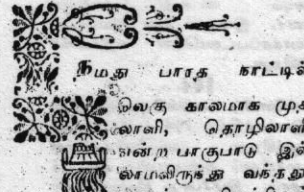 நமது பாரத நாட்டில்
வெகு காலமாக முத
லாளி, தொழிலாளி
என்ற பாகுபாடு இல்
லாமலிருந்து வந்தது